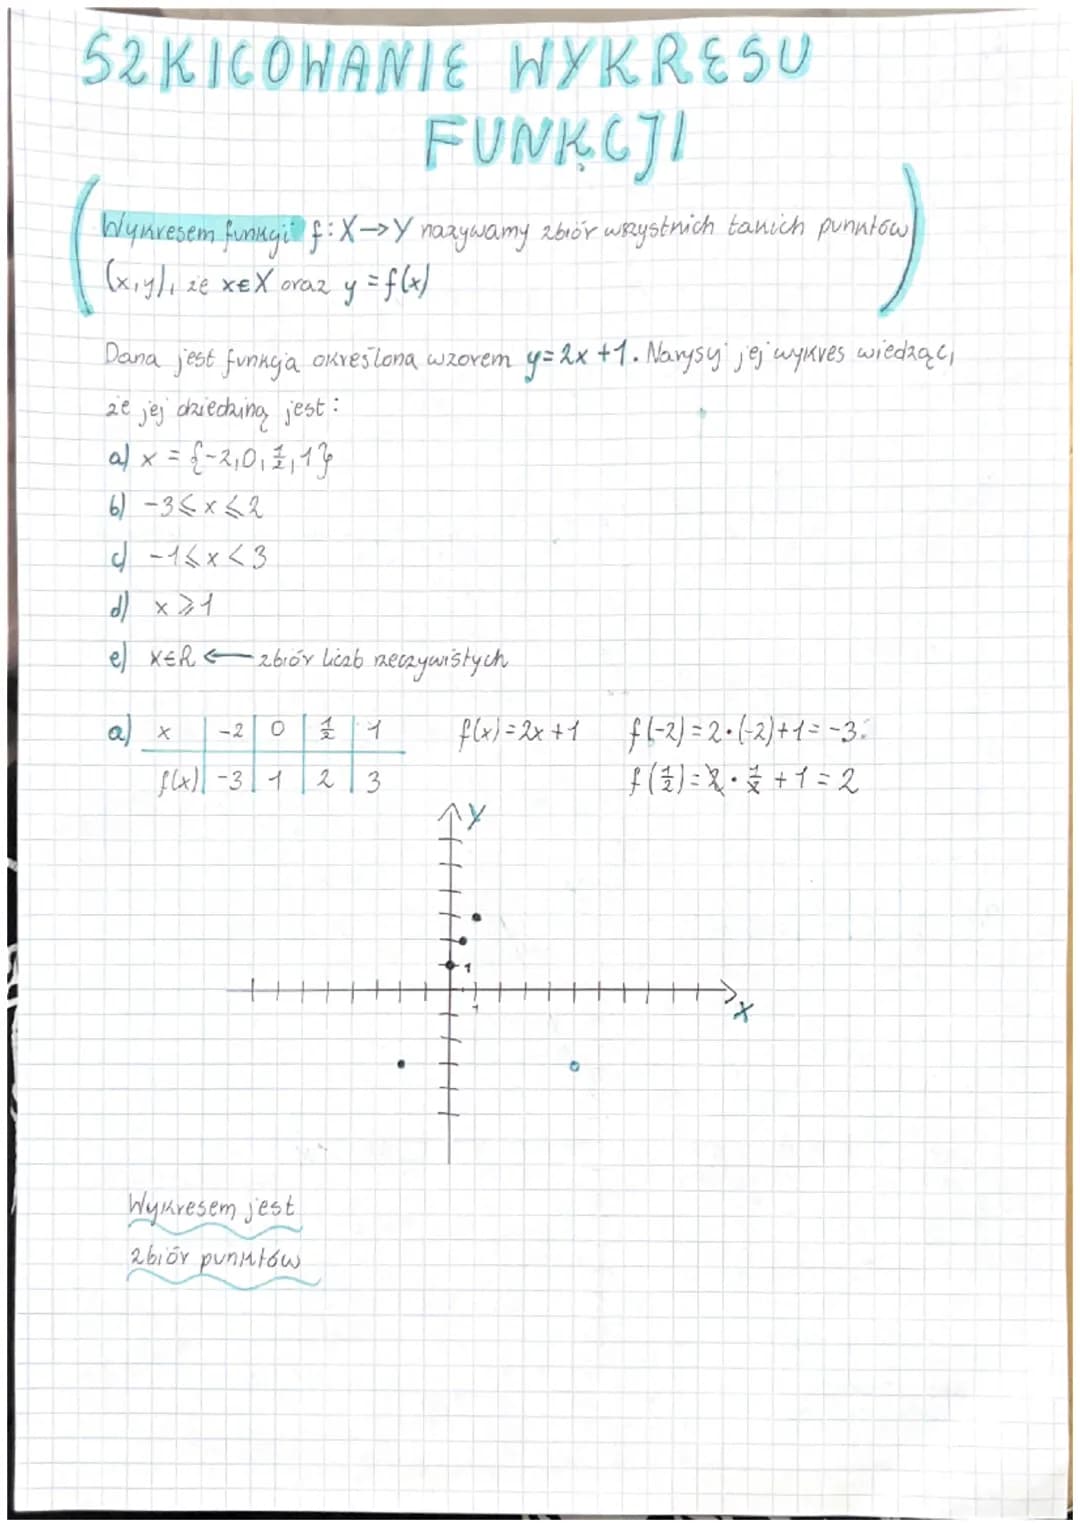 SZKICOWANIE WYKRESU
FUNKCJI
Wykresem funkcji f: X→Y nazywamy zbiór wszystkich takich punktów
(x,y), że x∈X oraz y=f(x)
Dana jest funkcja określona wzorem y=2x+1. Narysuj jej wykres wiedząc,
że jej dziedziną jest:
a) x = {-2,0,1/2,1}
b) -3⩽x⩽2
c) -1⩽x<3
d) x⩾1
e) x∈R ← zbiór liczb rzeczywistych
a) x | -2 | 0 | 1/2 | 1 f(x)=2x+1 f(-2)=2·(-2)+1=-3
f(x) | -3 | 1 | 2 | 3 f(1/2)=2·1/2+1=2
Y
1
1
X
Wykresem jest
zbiór punktów